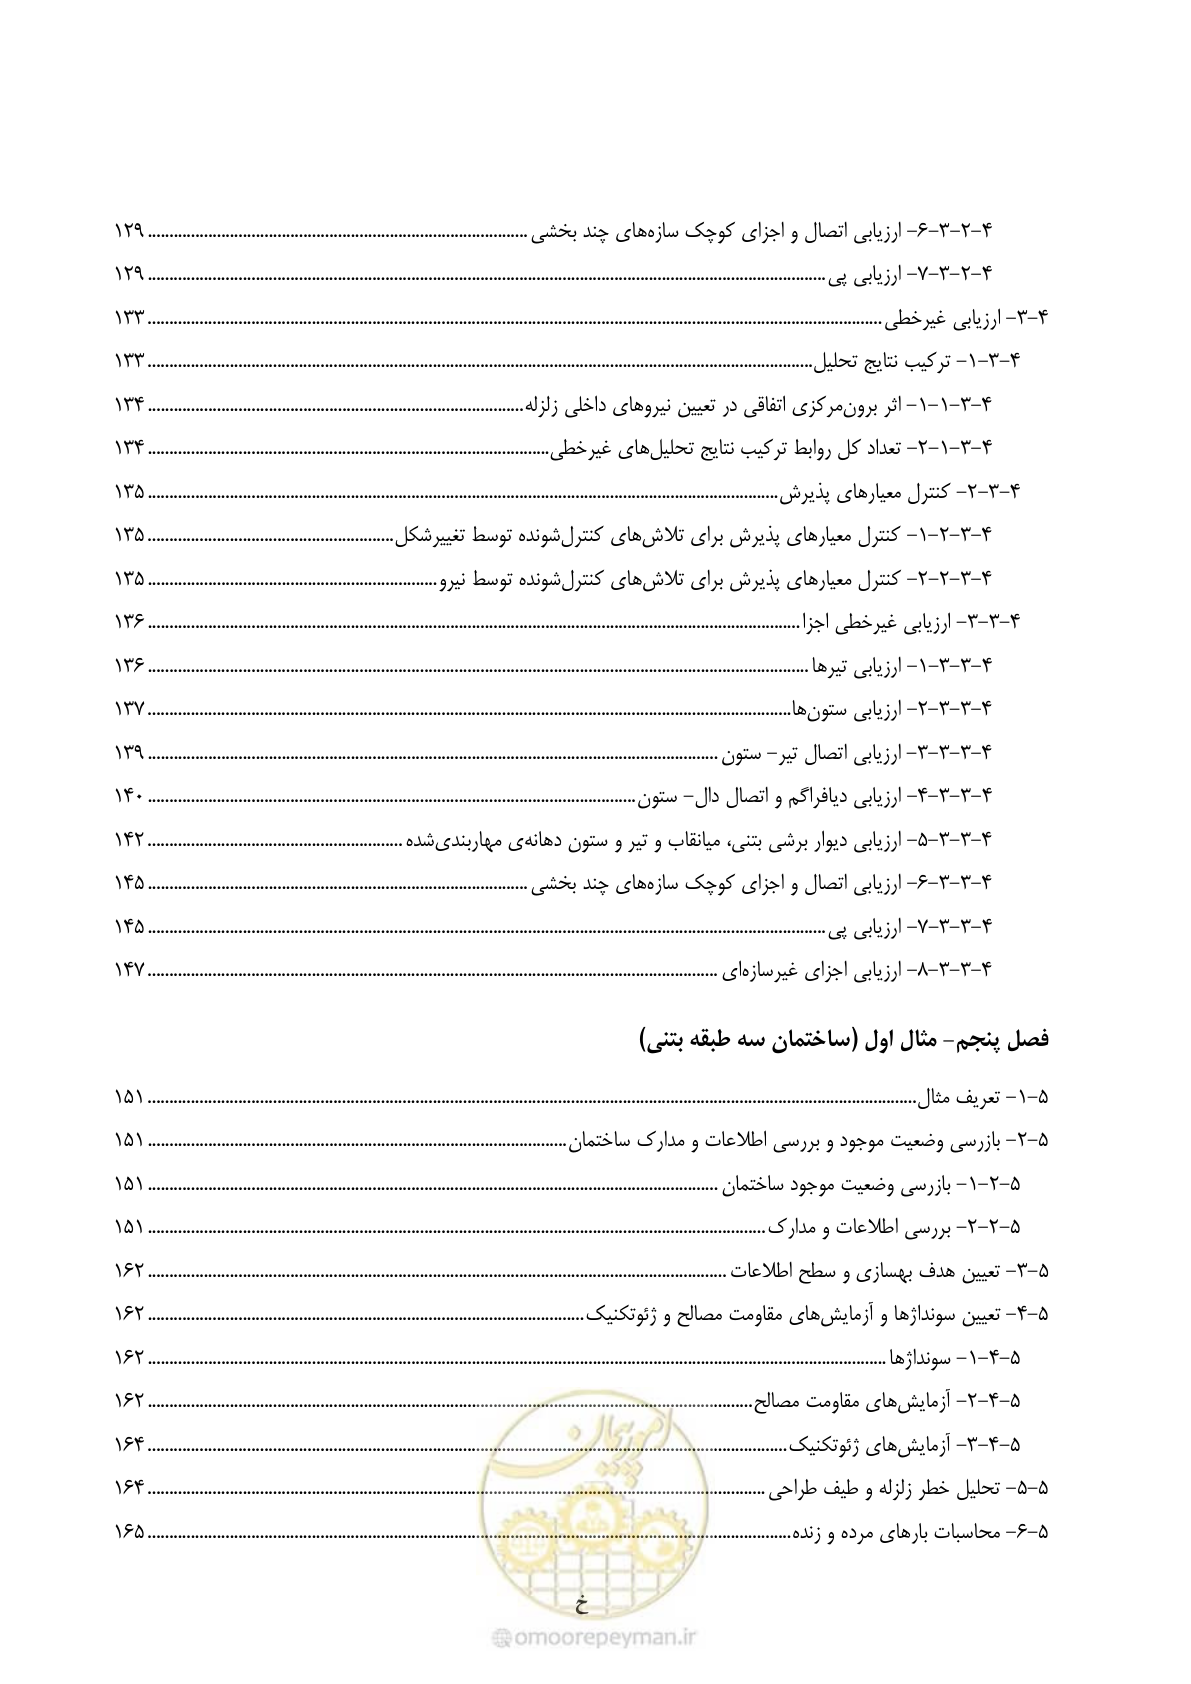 ۴-۲-۳-۶- ارزیابی اتصال و اجزای کوچک سازه‌های چند بخشی ۱۲۹
۴-۲-۳-۷- ارزیابی پی ۱۲۹
۴-۳- ارزیابی غیرخطی ۱۳۳
۴-۳-۱- ترکیب نتایج تحلیل ۱۳۳
۴-۳-۱-۱- اثر برون‌مرکزی اتفاقی در تعیین نیروهای داخلی زلزله ۱۳۴
۴-۳-۱-۲- تعداد کل روابط ترکیب نتایج تحلیل‌های غیرخطی ۱۳۴
۴-۳-۲- کنترل معیارهای پذیرش ۱۳۵
۴-۳-۲-۱- کنترل معیارهای پذیرش برای تلاش‌های کنترل‌شونده توسط تغییرشکل ۱۳۵
۴-۳-۲-۲- کنترل معیارهای پذیرش برای تلاش‌های کنترل‌شونده توسط نیرو ۱۳۵
۴-۳-۳- ارزیابی غیرخطی اجزا ۱۳۶
۴-۳-۳-۱- ارزیابی تیرها ۱۳۶
۴-۳-۳-۲- ارزیابی ستون‌ها ۱۳۷
۴-۳-۳-۳- ارزیابی اتصال تیر- ستون ۱۳۹
۴-۳-۳-۴- ارزیابی دیافراگم و اتصال دال- ستون ۱۴۰
۴-۳-۳-۵- ارزیابی دیوار برشی بتنی، میانقاب و تیر و ستون دهانه‌ی مهاربندی‌شده ۱۴۲
۴-۳-۳-۶- ارزیابی اتصال و اجزای کوچک سازه‌های چند بخشی ۱۴۵
۴-۳-۳-۷- ارزیابی پی ۱۴۵
۴-۳-۳-۸- ارزیابی اجزای غیرسازه‌ای ۱۴۷
فصل پنجم- مثال اول (ساختمان سه طبقه بتنی)
۵-۱- تعریف مثال ۱۵۱
۵-۲- بازرسی وضعیت موجود و بررسی اطلاعات و مدارک ساختمان ۱۵۱
۵-۲-۱- بازرسی وضعیت موجود ساختمان ۱۵۱
۵-۲-۲- بررسی اطلاعات و مدارک ۱۵۱
۵-۳- تعیین هدف بهسازی و سطح اطلاعات ۱۶۲
۵-۴- تعیین سونداژها و آزمایش‌های مقاومت مصالح و ژئوتکنیک ۱۶۲
۵-۴-۱- سونداژها ۱۶۲
۵-۴-۲- آزمایش‌های مقاومت مصالح ۱۶۲
۵-۴-۳- آزمایش‌های ژئوتکنیک ۱۶۴
۵-۵- تحلیل خطر زلزله و طیف طراحی ۱۶۴
۵-۶- محاسبات بارهای مرده و زنده ۱۶۵
امور پیمان
خ
@omoorepeyman.ir